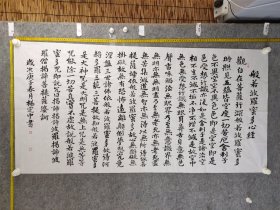 般若波羅蜜多心經
觀自在菩薩行深般若波羅蜜多
時照見五蘊皆空度一切苦厄舍利子
色不異空空不異色色即是空空即是
色受想行識亦復如是舍利子是諸法空
相不生不滅不垢不淨不增不減是故空中
無色無受想行識無眼耳鼻舌身意無色
聲香味觸法無眼界乃至無意識界無
無明亦無無明盡乃至無老死亦無老死盡
無苦集滅道無智亦無得以無所得故菩
提薩埵依般若波羅蜜多故心無掛礙無
掛礙故無有恐怖遠離顛倒夢想究竟
涅槃三世諸佛依般若波羅蜜多故得阿
耨多羅三藐三菩提故知般若波羅蜜多
是大神咒是大明咒是無上咒是無等等
咒能除一切苦真實不虛故說般若波羅
蜜多咒即說咒曰揭諦揭諦波羅揭諦波
羅僧揭諦菩提薩婆訶
庚子春月楊宗中書